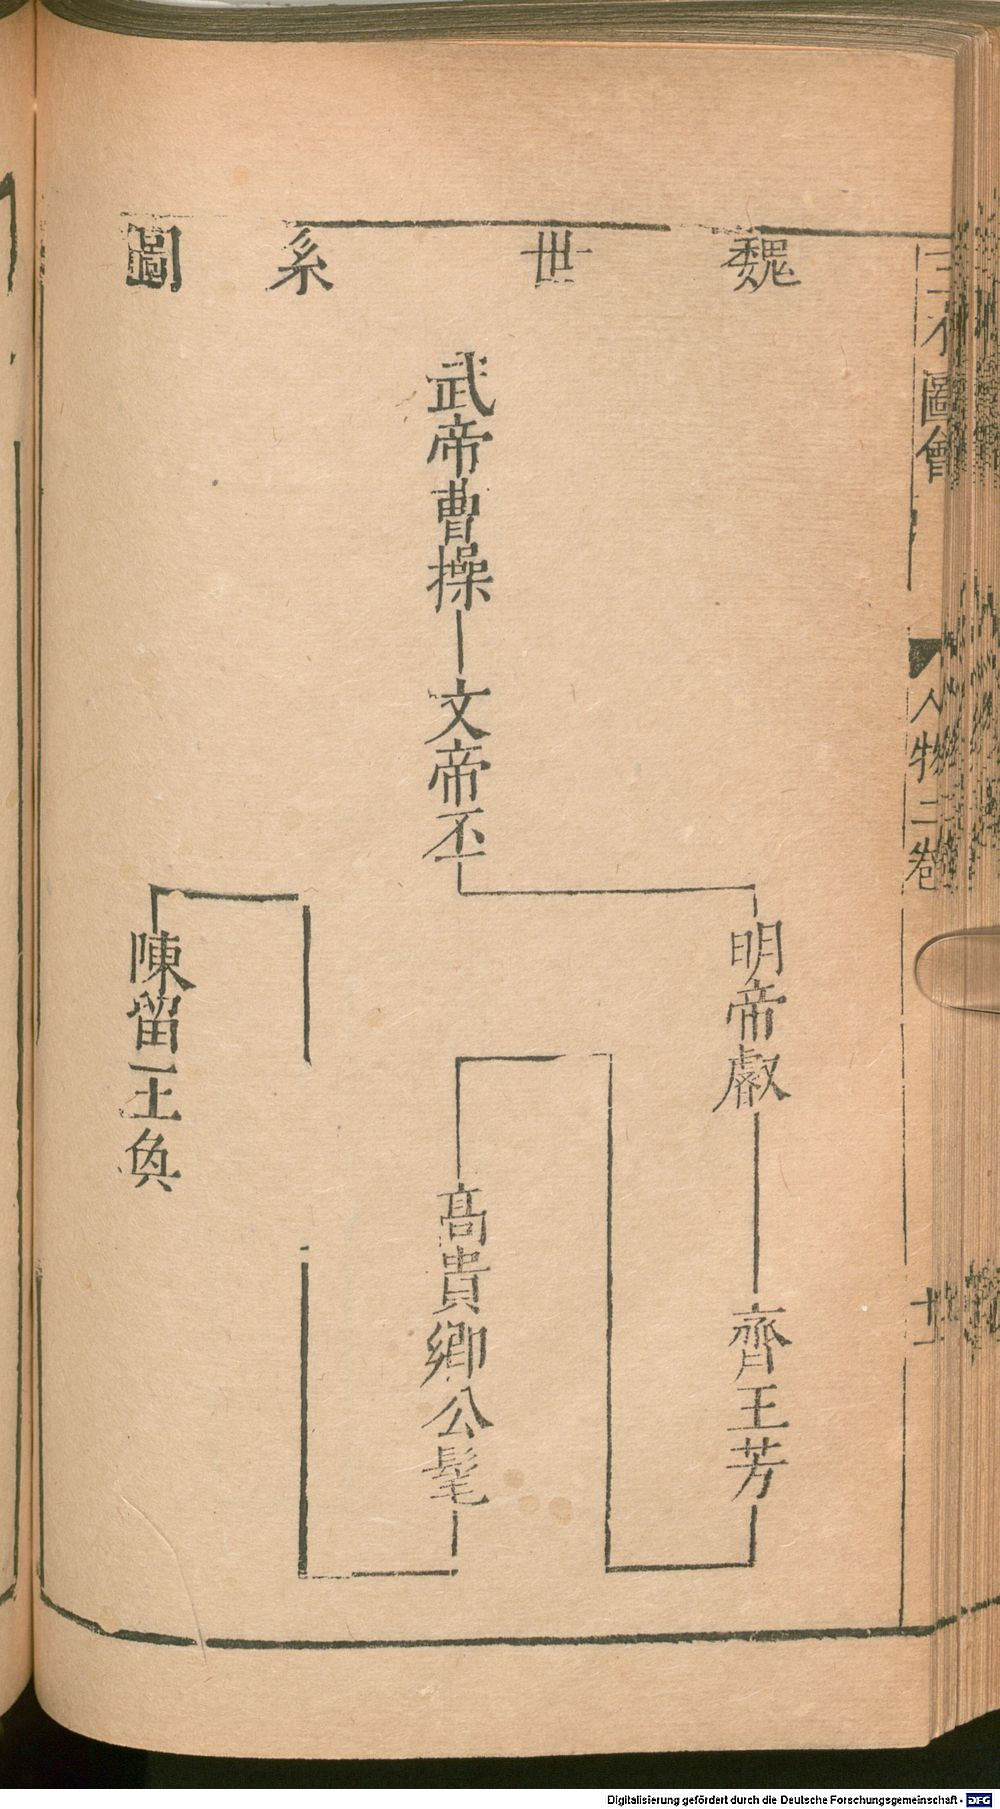 魏世系圖
武帝曹操
文帝丕
明帝叡
齊王芳
高貴鄉公髦
陳留王奐
圖會
人物二卷
Digitalisierung gefördert durch die Deutsche Forschungsgemeinschaft - DFG